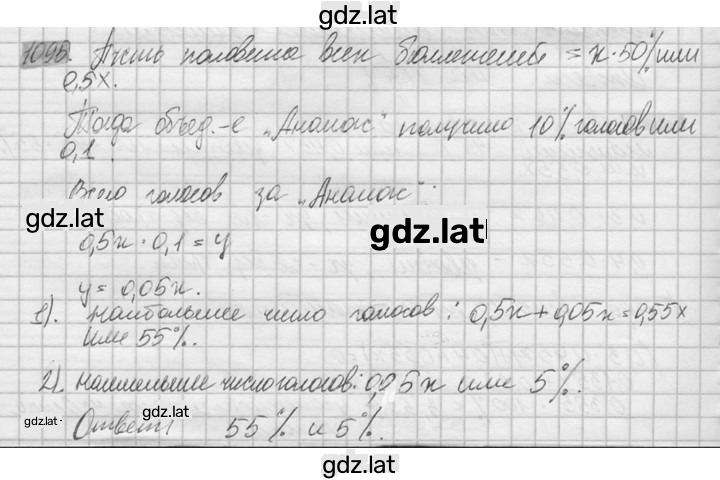 gdz.lat
1095. Пусть половина всех бюллетеней = x · 50% или
0,5x.
Тогда объед.-е „Ананас" получило 10% голосов или
0,1.
Всего голосов за „Ананас":
gdz.lat
gdz.lat
0,5x · 0,1 = y
y = 0,05x.
1). наибольшее число голосов: 0,5x + 0,05x = 0,55x
или 55%.
2). наименьшее число голосов: 0,05x или 5%.
gdz.lat
gdz.lat
Ответ: 55% и 5%.
gdz.lat